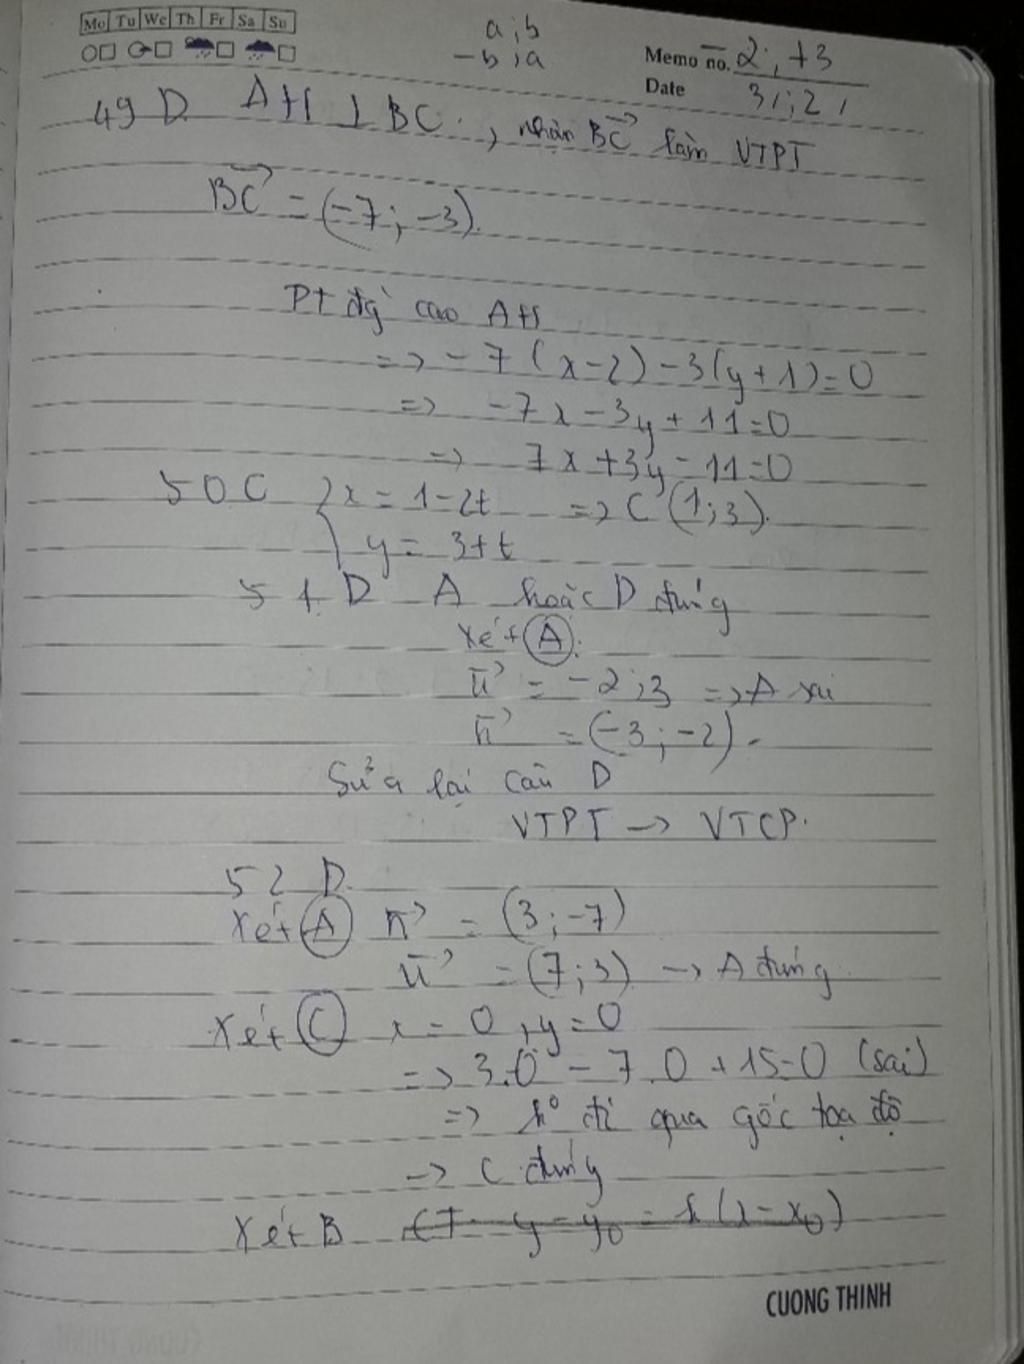 Mo Tu We Th Fr Sa Su
a ; b
-b ; a
Memo no. -2 ; +3
Date 3 ; 2
49 D. AH ⊥ BC , nhận BC→ làm VTPT
BC→ = (-7 ; -3).
Pt đg cao AH
=> -7(x-2) -3(y+1)=0
=> -7x -3y +11=0
=> 7x+3y-11=0
50 C { x = 1-2t => C (1;3).
y = 3+t
51 D A hoặc D đúng
Xét (A):
u→ = -2 ; 3 => A sai
n→ = (-3 ; -2).
Sửa lại câu D
VTPT -> VTCP.
52 D.
Xét (A) n→ = (3 ; -7)
u→ = (7 ; 3) -> A đúng
Xét (C) x = 0 , y = 0
=> 3.0 - 7.0 +15=0 (sai)
=> ko đi qua gốc tọa độ
-> C đúng
Xét B y - y0 = k (x - x0)
CUONG THINH